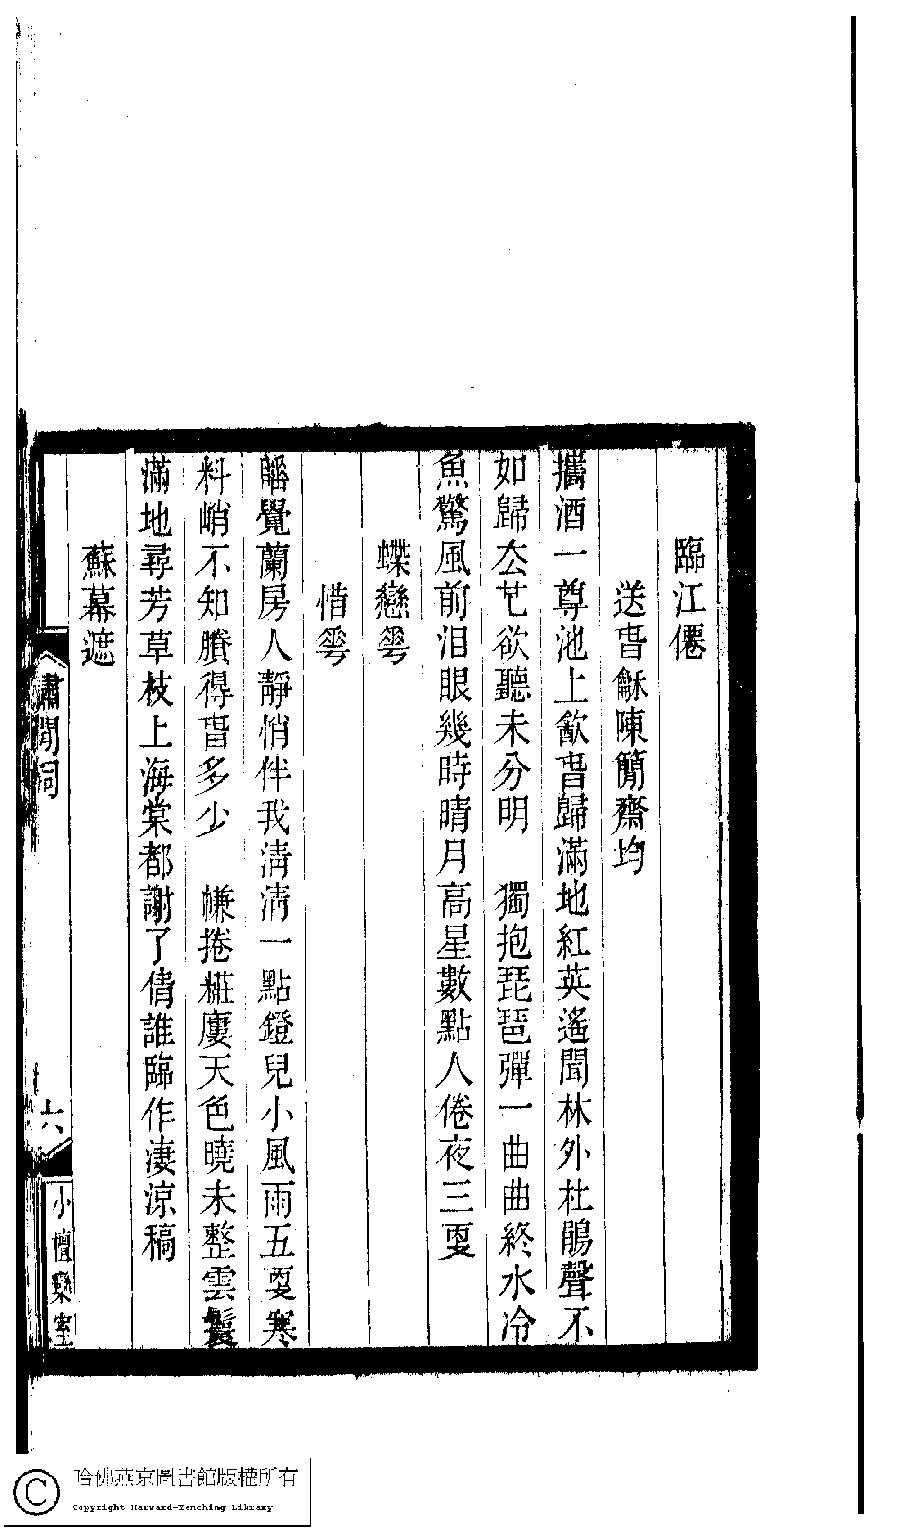 臨江僊
送旾龢陳簡齋均
攜酒一尊池上㱃旾歸滿地紅英遙聞林外杜鵑聲不
如歸厺也欲聽未分明　獨抱琵琶彈一曲曲終水冷
魚驚風前泪眼幾時晴月高星數點人倦夜三更
蝶戀蕐
惜蕐
覺蘭房人靜悄伴我淸淸一點鐙兒小風雨五更寒
料峭不知賸得旾多少　㡘捲糚廔天色曉未整雲鬟
滿地尋芳草枝上海棠都謝了倩誰臨作淒涼稿
蘇幕遮
閒詞
六
小檀欒室
哈佛燕京圖書館版權所有
Copyright Harvard-Yenching Library